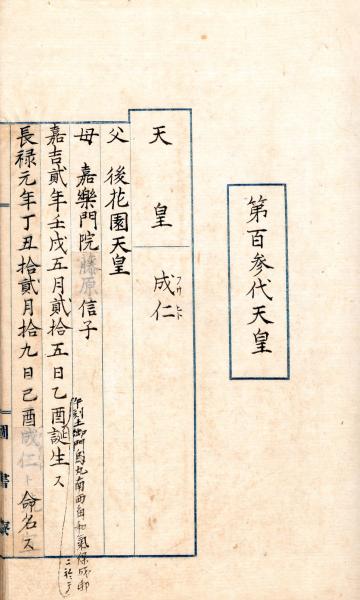 第百参代天皇
天皇 成仁
フサヒト
父 後花園天皇
母 嘉樂門院藤原信子
嘉吉貳年壬戌五月貳拾五日乙酉誕生ス
午刻土御門烏丸南西角和氣保成邸
ニ於テ
長禄元年丁丑拾貳月拾九日己酉成仁ト命名ス
圖書寮